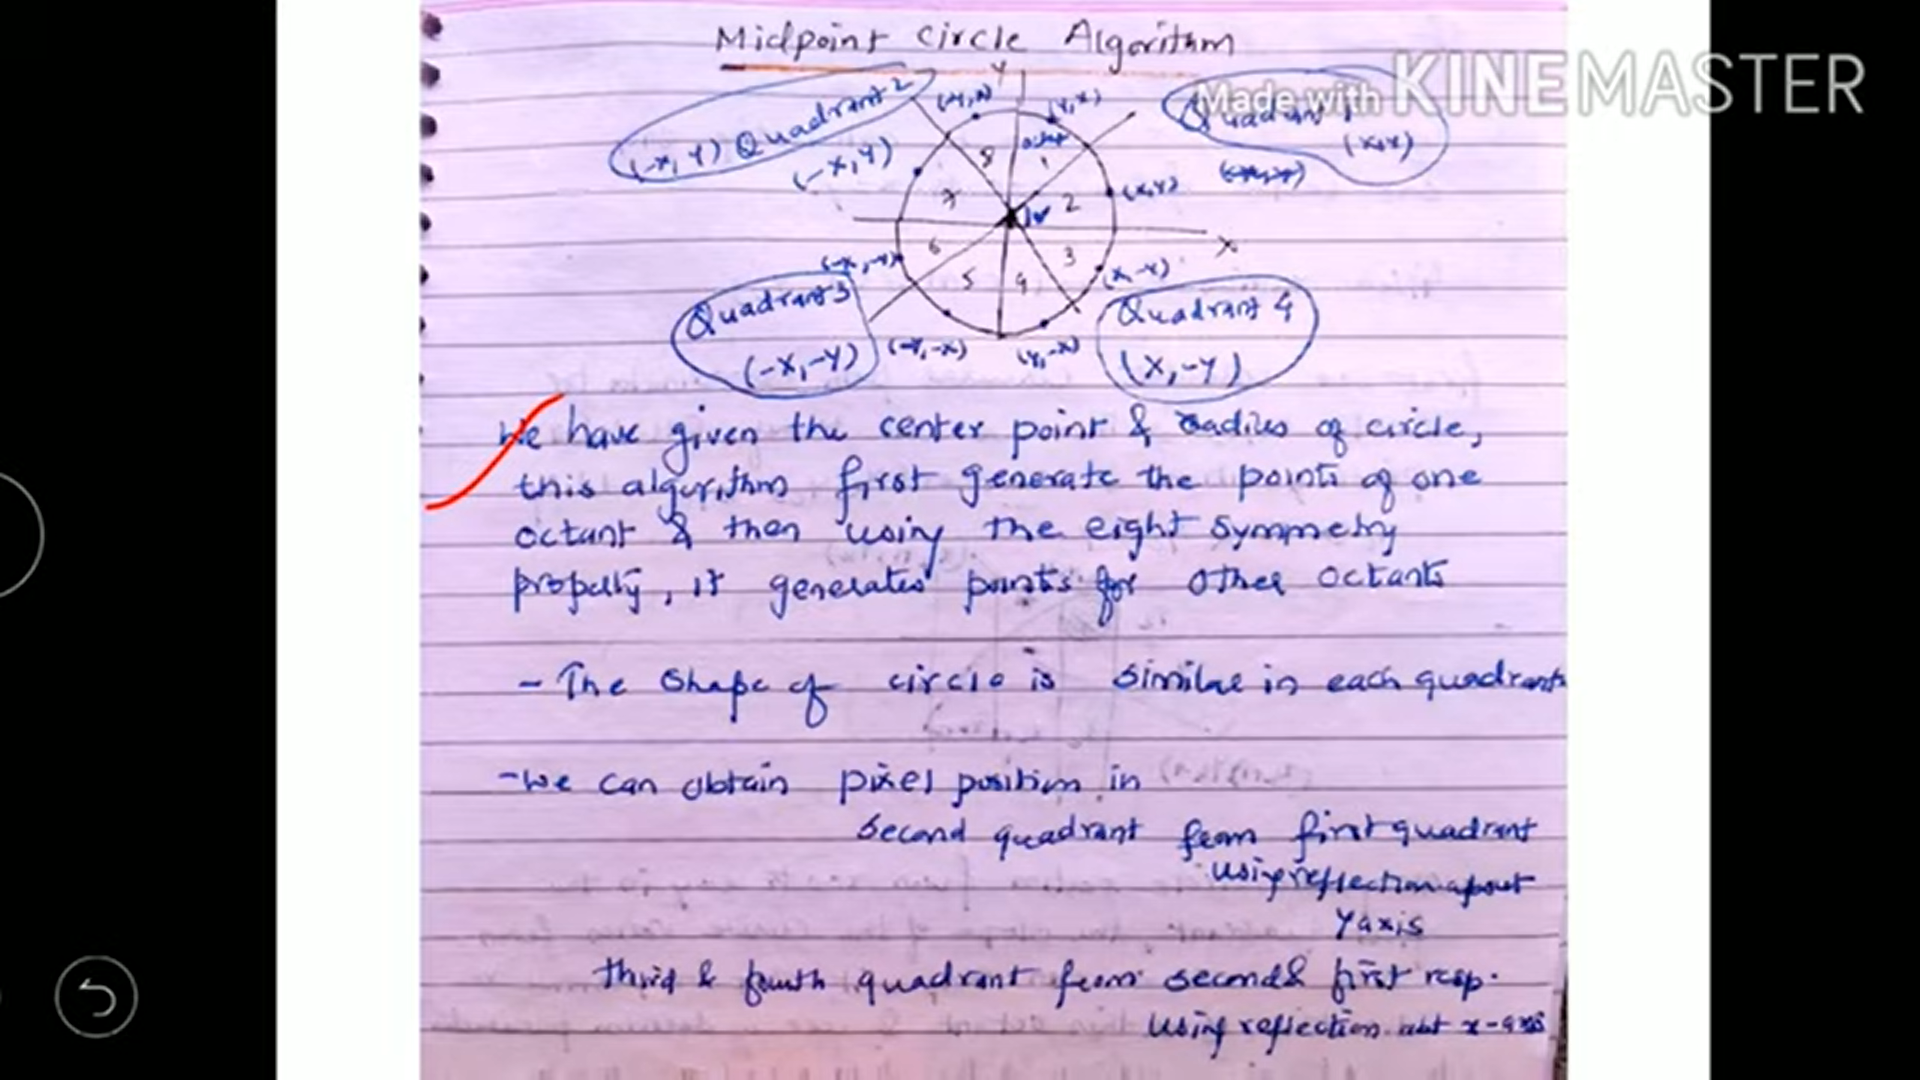 Midpoint Circle Algorithm
Made with KINEMASTER
Y
(-Y,X) (Y,X)
(-X,Y) Quadrant 2
Quadrant 1
(X,Y)
(-X,Y)
8 1
7 2
(X,Y)
X
6 3
5 4
(-X,-Y) (X,-Y)
Quadrant 3
(-X,-Y)
Quadrant 4
(X,-Y)
(-Y,-X) (Y,-X)
We have given the center point & radius of circle,
this algorithm first generate the points of one
octant & then using the eight symmetry
property, it generates points for other octants
- The shape of circle is similar in each quadrant
- We can obtain pixel position in
second quadrant from first quadrant
using reflection about
Y axis
third & fourth quadrant from second & first resp.
using reflection abt x-axis